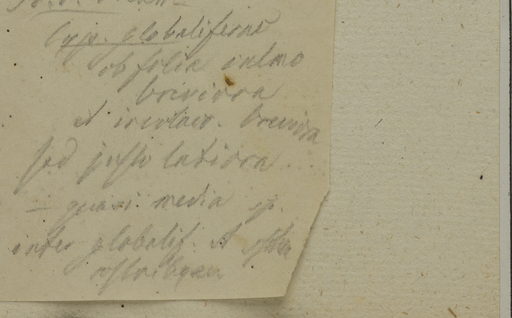 Cyp. globuliferus
ob folia culmo
breviora
et involucr. breviora
sed justo latiora
– quasi media sp.
inter globulif. et